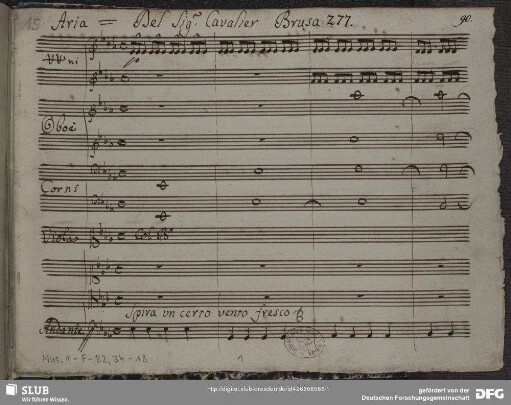 15 Aria = Del Sig.r Cavalier Brusa 277. 90.
VVni
Oboè
Corni
Viola Col B.so
Spira un certo vento fresco
Andante
Mus. 1-F-82,34-18 1
SLUB
Wir führen Wissen.
gefördert von der
Deutschen Forschungsgemeinschaft
DFG